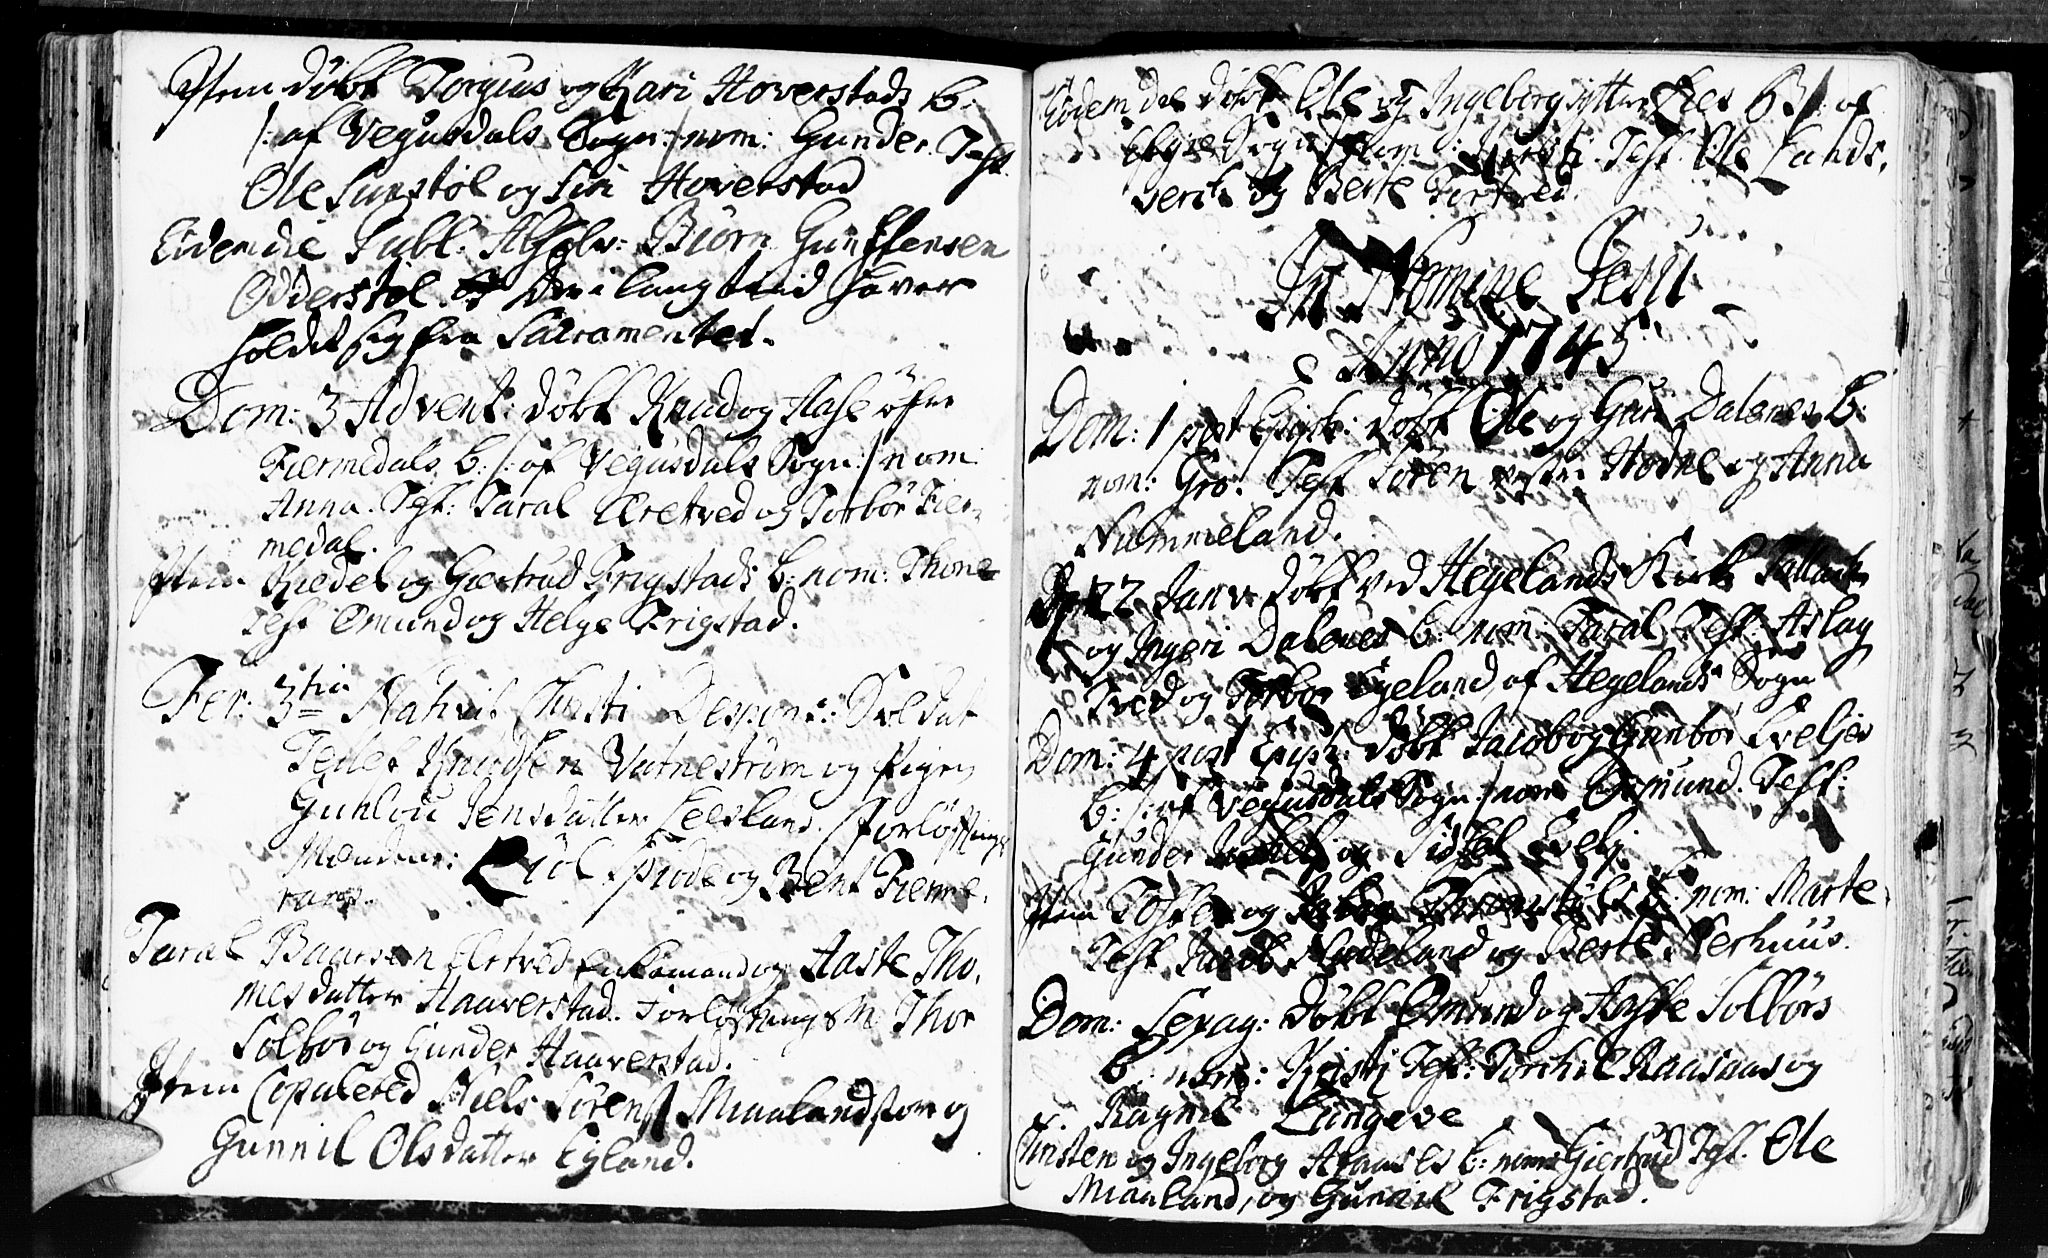 Item döbt Torgius og Kari Hoverstads b:
/: af Vegusdals Sogn :/ nom: Gunder. Test.
Ole Sunstöl og Siri Hoverstad
Eidem die Publ. Absolv: Biörn Gunstensen
Odderstöl. som i lang tiid haver
holdet sig fra Sacramentet.
Dom: 3 Advent: döbt Knud og Aase öfre
Fiermedals b: /: af Vegusdals Sogn :/ nom:
Anna. Test: Taral Eretved og Torbör Fier-
medal.
Item Kiedel og Giertrud Frigstads b: nom: Thone
Test Omund og Helge Frigstad.
Fer: 3tia Nativit Christi Despons: Soldat
Tellef Knudsen Vatneström og Pigen
Gunlou Jensdatter Leesland. Forlöfnings
Mændene: Eiul Spode og Bent Fienne-
raas.
Taral Baarsen Ertved Enkemand og Aaste Tho-
mesdatter Haaverstad. Forlöfnings M Thor
Solbör og Gunder Haaverstad.
Item Copulered Niels Sörens. Miaaland som og
Gunnil Olsdatter Egland.
Eodem die döbt Ole og Ingeborg b: /: af
Sogn :/ nom: Kirsti. Test. Ole Lands-
verk og Berte
In Nomine Jesu
Anno 1745
Dom: 1 post Epiph: döbt Ole og Guri Dalenes b:
nom: Gro. Test Sören vestre Hodne og Anna
Nummeland.
D. 22 Janv. döbt ved Hegelands Kirke Tallak
og Ingeri Dalenes b: nom: Taral Test: Aslag
Tved og Torbor Egeland, af Hegelands Sogn
Dom: 4 post Epiph: döbt Jacob og Gunbor Eveljes
b: /: af Vegusdals Sogn :/ nom Osmund. Test:
Gunder og Sidsel Evelj.
Item Tosten og b: nom: Marte.
Test Jacob Hodeland og Berte Nerhuus.
Dom: Sexag: döbt Omund og Aaste Solbörs
b: nom: Kristj Test: Torchil Raasaas og
Ragnil Langeve
Kristen og Ingeborg b: nom Giertrud Test. Ole
Miaaland, og Gunnil Frigstad.